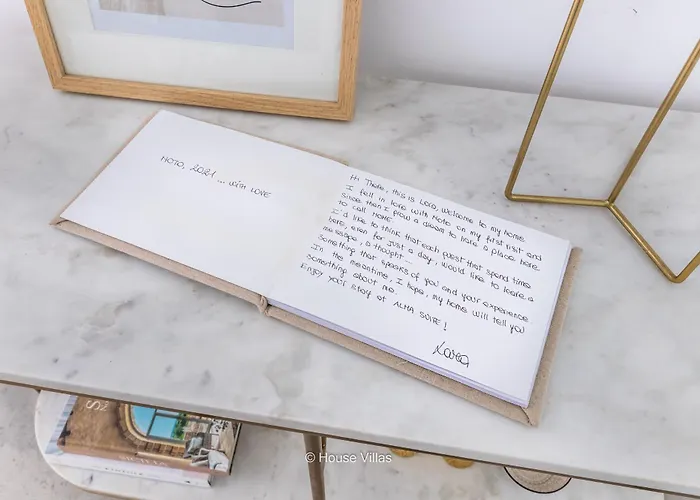 NOTO, 2021 ... WITH LOVE
Hi There, this is Lara, welcome to my home.
I fell in love with Noto on my first visit and
since then I grow a dream to have a place here
to call HOME.
I'd like to think that each guest that spend time
here, even for just a day, would like to leave a
message, a thought -
something that speaks of you and your experience
In the meantime, I hope, my home will tell you
something about me.
Enjoy your stay at ALMA SUITE!
Lara
© House Villas